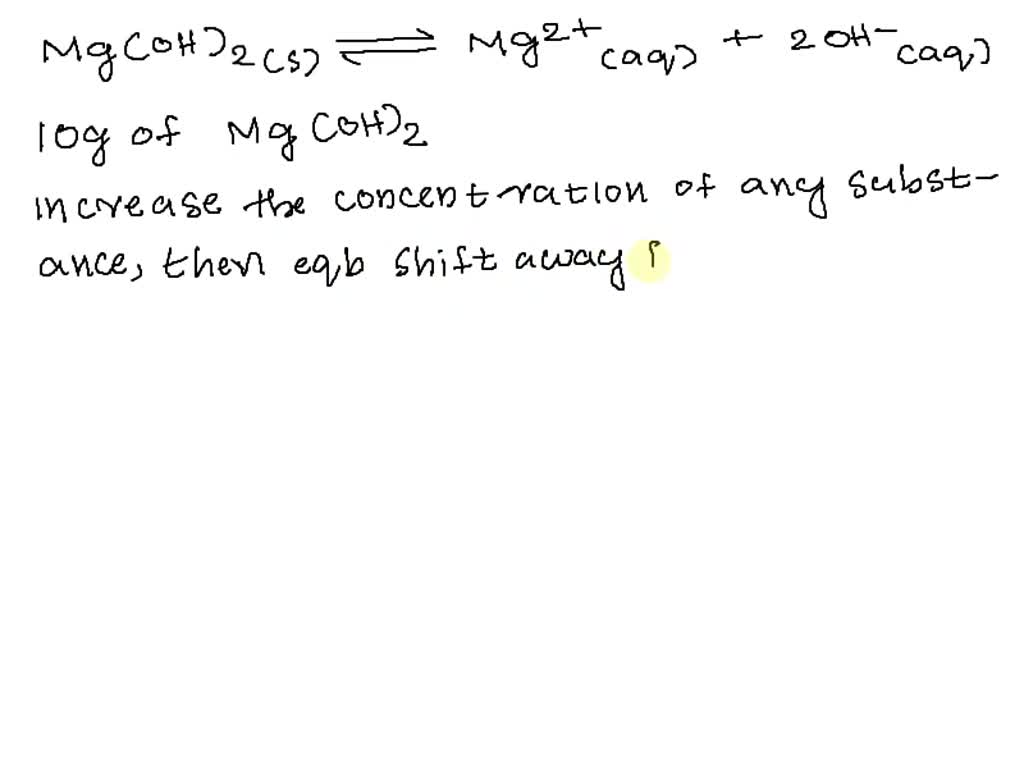 Mg(OH)2(s) ⇌ Mg2+(aq) + 2OH-(aq)
10g of Mg(OH)2
increase the concentration of any subst-
ance, then eqb shift away